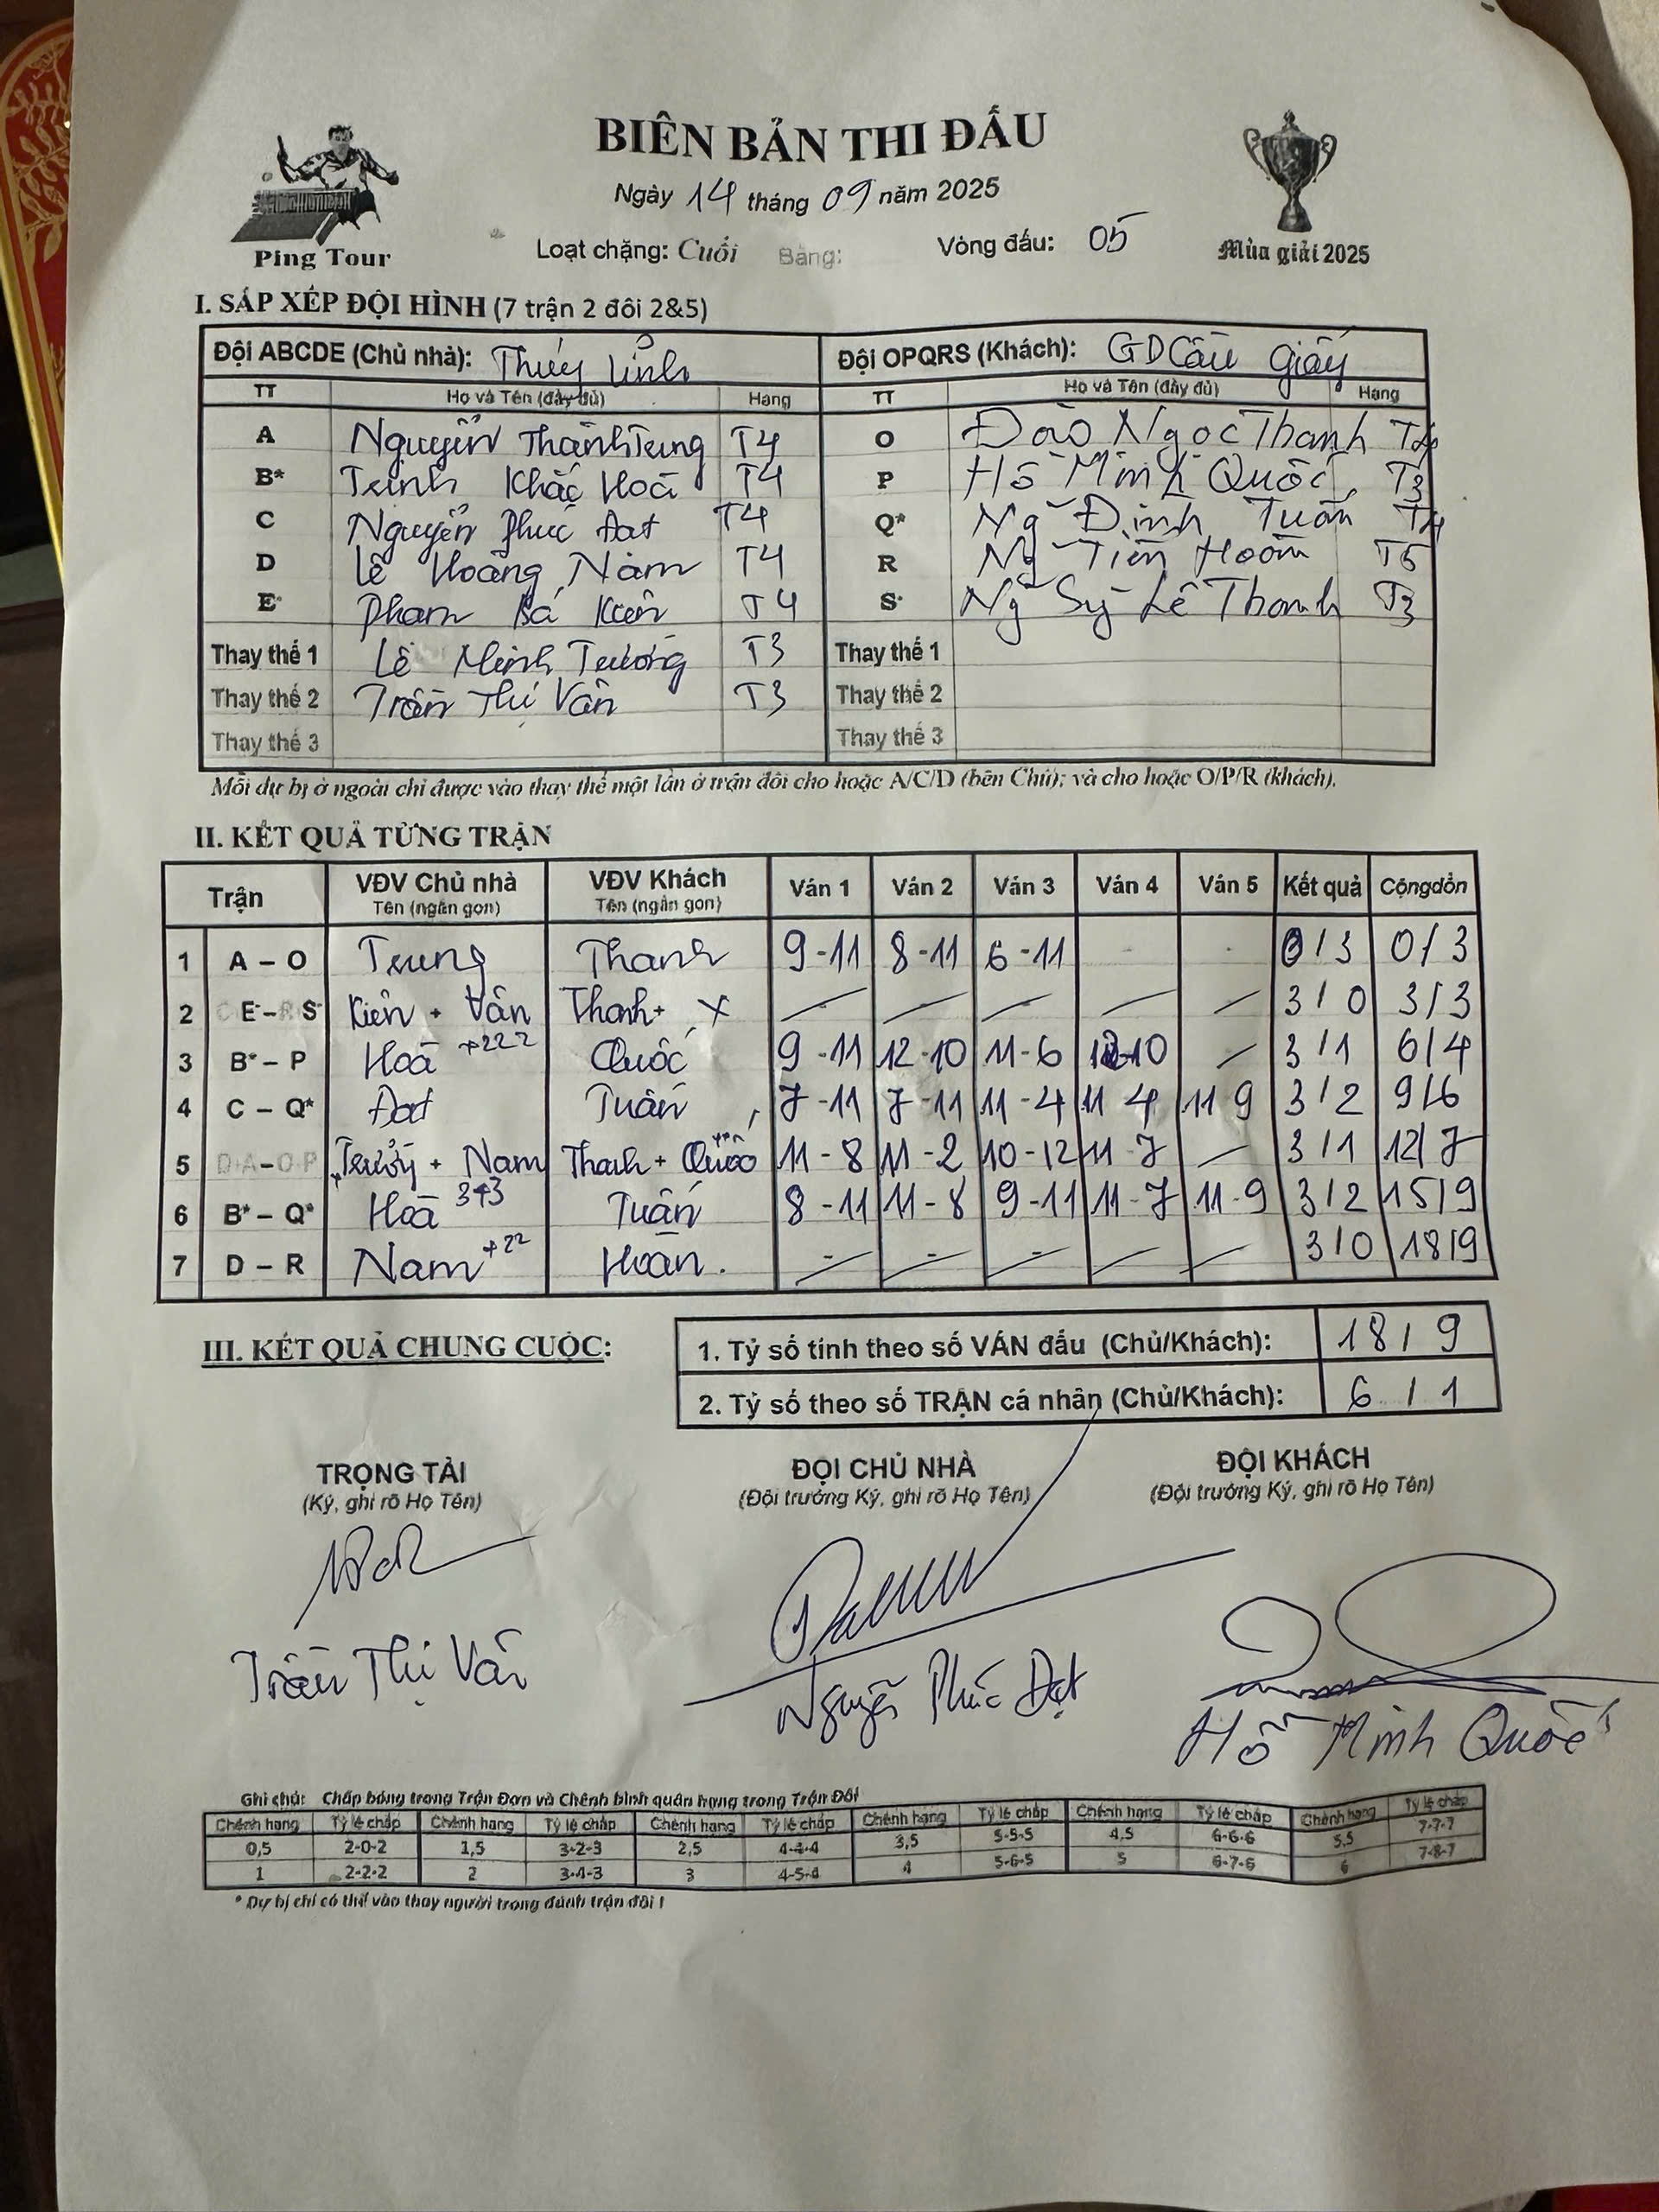 BIÊN BẢN THI ĐẤU
Ngày 14 tháng 09 năm 2025
Ping Tour
Loạt chặng: Cuối Bảng: Vòng đấu: 05
Mùa giải 2025
I. SẮP XẾP ĐỘI HÌNH (7 trận 2 đôi 2&5)
Đội ABCDE (Chủ nhà): Thúy Lĩnh Đội OPQRS (Khách): GD Cầu Giấy
TT Họ và Tên (đầy đủ) Hạng TT Họ và Tên (đầy đủ) Hạng
A Nguyễn Thành Trung T4 O Đào Ngọc Thanh
B* Trịnh Khắc Hoà T4 P Hồ Minh Quốc T3
C Nguyễn Phúc Đạt T4 Q* Ng Đình Tuấn T4
D Lê Hoàng Nam T4 R Ng Tiến Hoàn T5
E* Phạm Bá Kiên T4 S* Ng Sỹ Lê Thanh T3
Thay thế 1 Lê Minh Trường T3 Thay thế 1
Thay thế 2 Trần Thị Vân T3 Thay thế 2
Thay thế 3 Thay thế 3
Mỗi dự bị ở ngoài chỉ được vào thay thế một lần ở trận đôi cho hoặc A/C/D (bên Chủ); và cho hoặc O/P/R (khách).
II. KẾT QUẢ TỪNG TRẬN
Trận VĐV Chủ nhà VĐV Khách Ván 1 Ván 2 Ván 3 Ván 4 Ván 5 Kết quả Cộngdồn
Tên (ngắn gọn) Tên (ngắn gọn)
1 A – O Trung Thanh 9-11 8-11 6-11 - - 0/3 0/3
2 E – S Kiên + Vân Thanh + X 3/0 3/3
3 B* – P Hoà +222 Quốc 9-11 12-10 11-6 12-10 3/1 6/4
4 C – Q* Đạt Tuấn 7-11 7-11 11-4 11 4 11 9 3/2 9/6
5 D+A – O P + Nam Thanh + Quốc 11-8 11-2 10-12 11-7 3/1 12/7
6 B* – Q* Hoà 343 Tuấn 8-11 11-8 9-11 11-7 11-9 3/2 15/9
7 D – R Nam +22 Hoàn. 3/0 18/9
III. KẾT QUẢ CHUNG CUỘC:
1. Tỷ số tính theo số VÁN đấu (Chủ/Khách): 18/9
2. Tỷ số theo số TRẬN cá nhân (Chủ/Khách): 6/1
TRỌNG TÀI ĐỘI CHỦ NHÀ ĐỘI KHÁCH
(Ký, ghi rõ Họ Tên) (Đội trưởng Ký, ghi rõ Họ Tên) (Đội trưởng Ký, ghi rõ Họ Tên)
Trần Thị Vân Nguyễn Phúc Đạt Hồ Minh Quốc
Ghi chú: Chấp bóng trong Trận Đơn và Chênh bình quân hạng trong Trận Đôi
Chênh hạng Tỷ lệ chấp Chênh hạng Tỷ lệ chấp Chênh hạng Tỷ lệ chấp Chênh hạng Tỷ lệ chấp Chênh hạng Tỷ lệ chấp Chênh hạng Tỷ lệ chấp
0,5 2-0-2 1,5 3-2-3 2,5 4-4-4 3,5 5-5-5 4,5 6-6-6 5,5 7-7-7
1 2-2-2 2 3-4-3 3 4-5-4 4 5-6-5 5 6-7-6 6 7-8-7
* Dự bị chỉ có thể vào thay người trong đánh trận đôi !